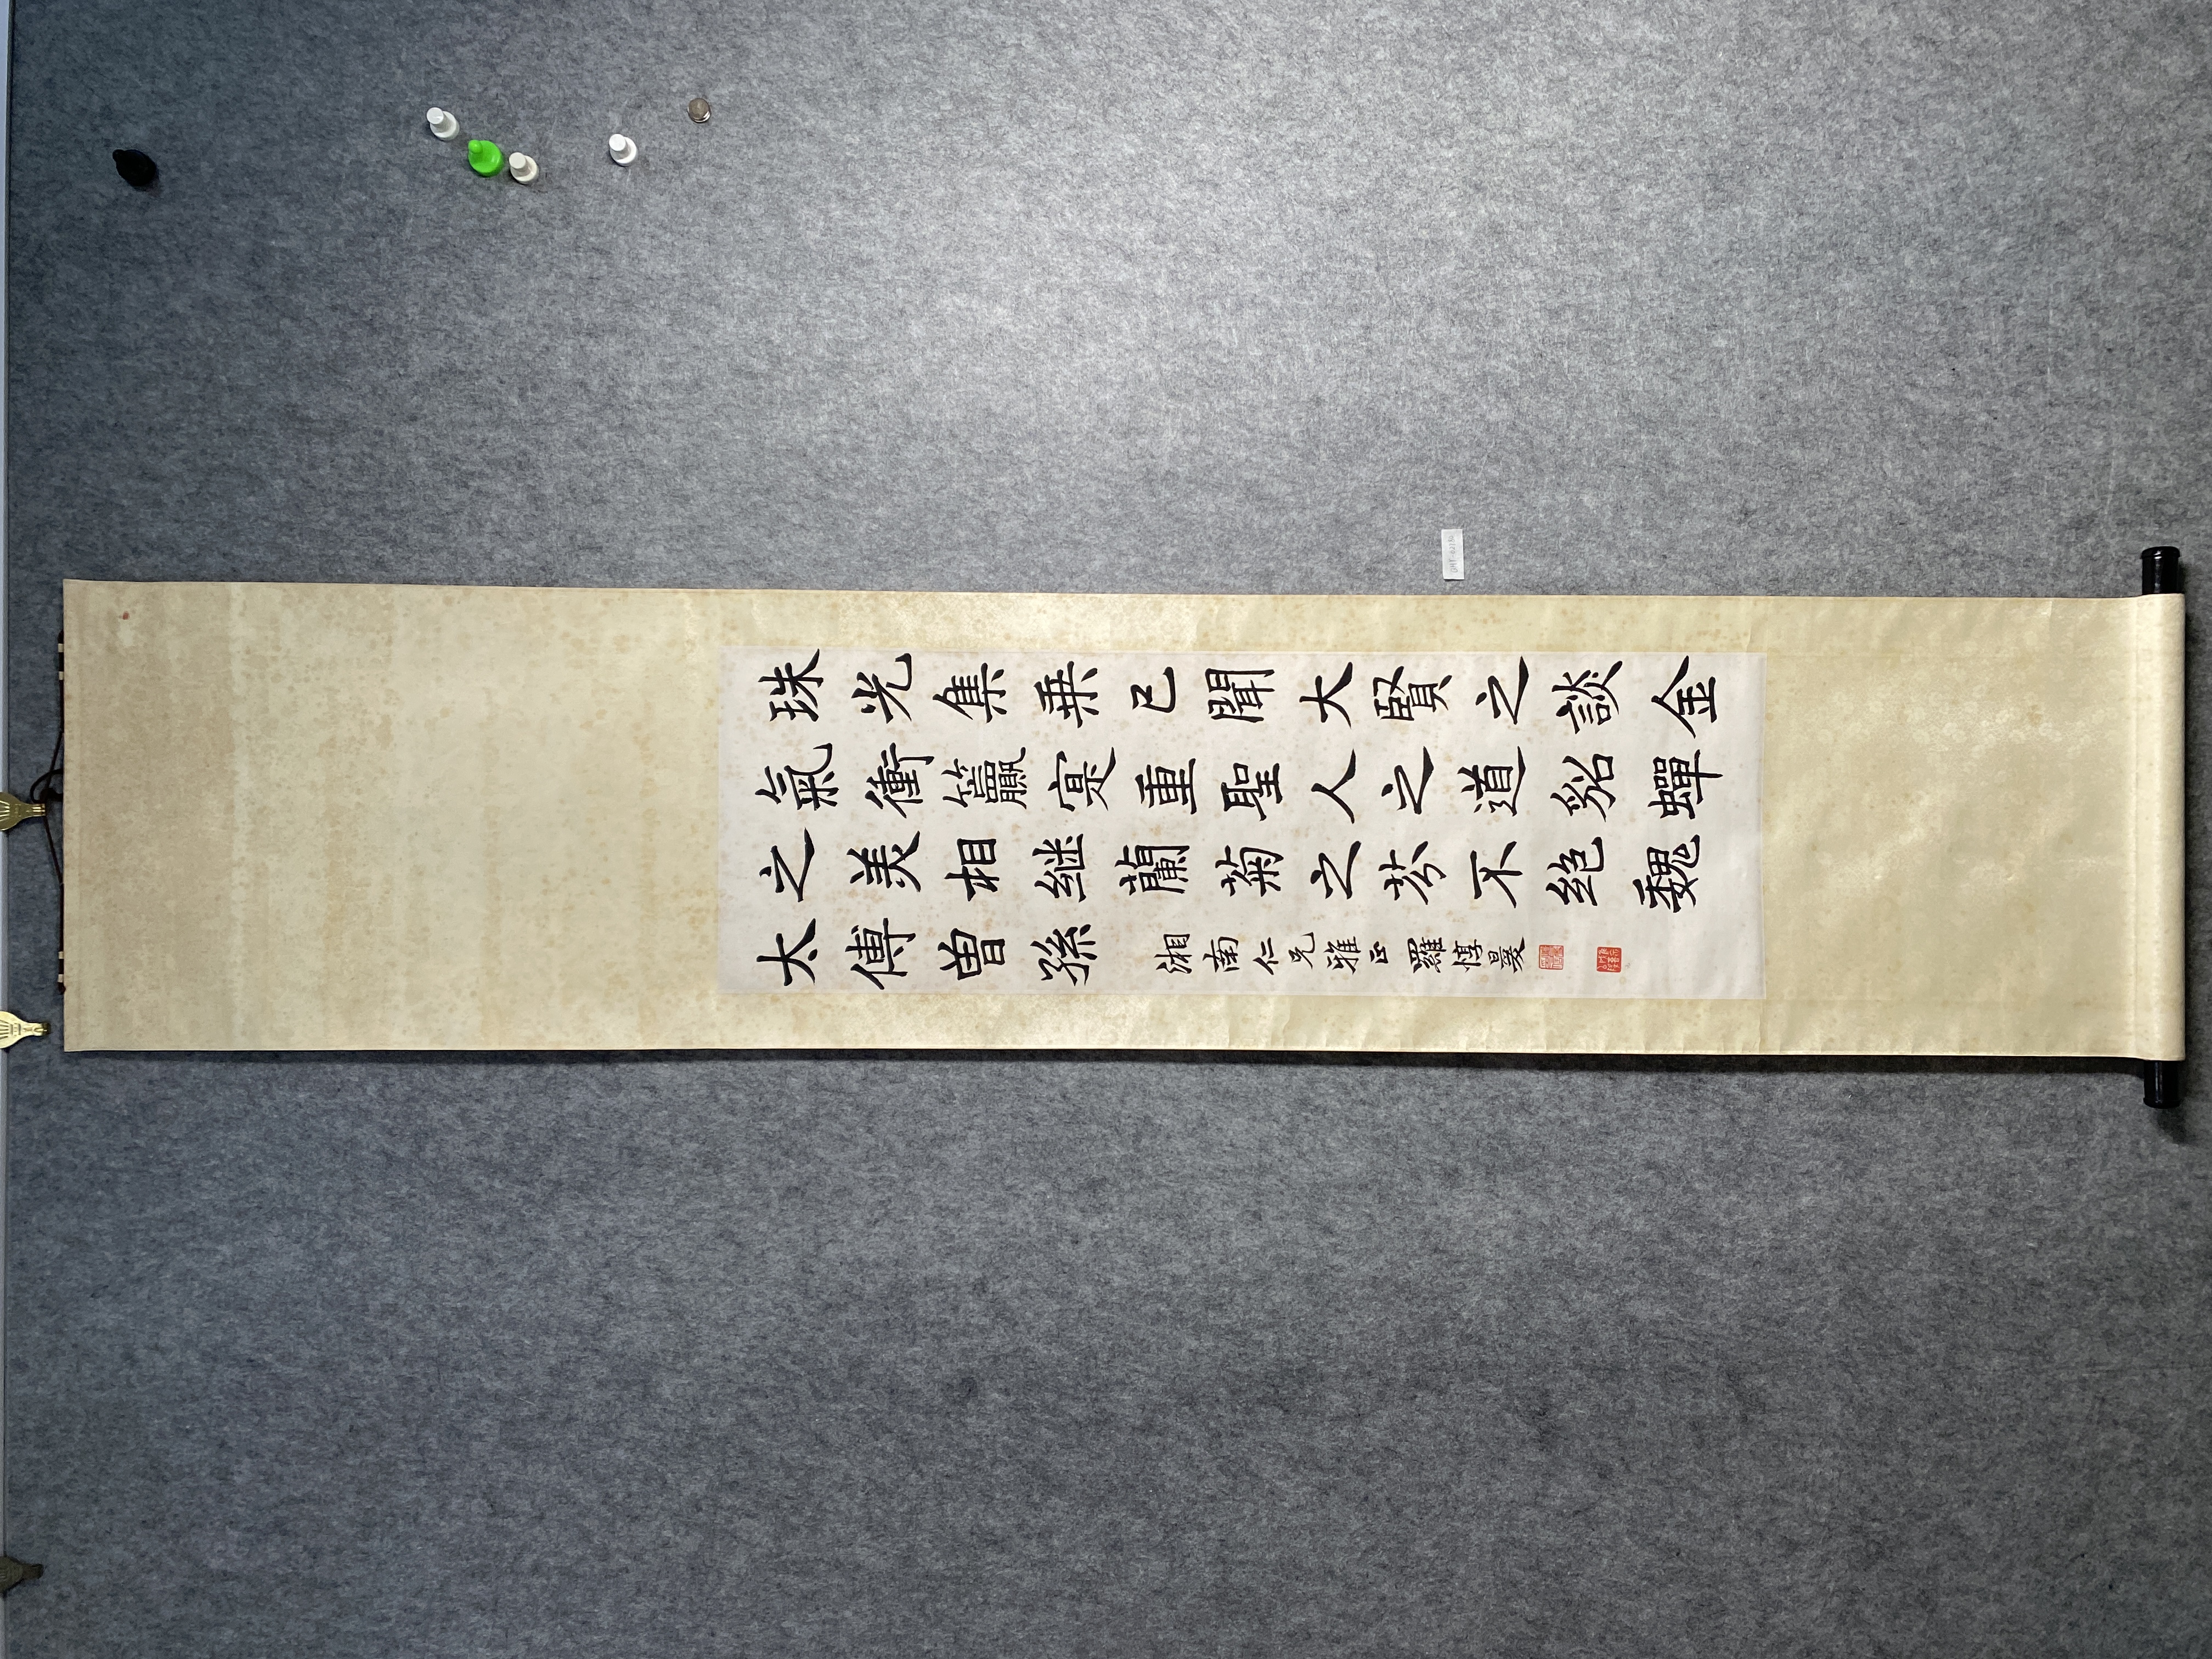 珠光集乗已聞大賢之談金
氣衝籯寔重聖人之道貂蟬
之美相継蘭菊之芬不绝魏
太傅曽孫
湘南仁兄雅正 羅惇㬊